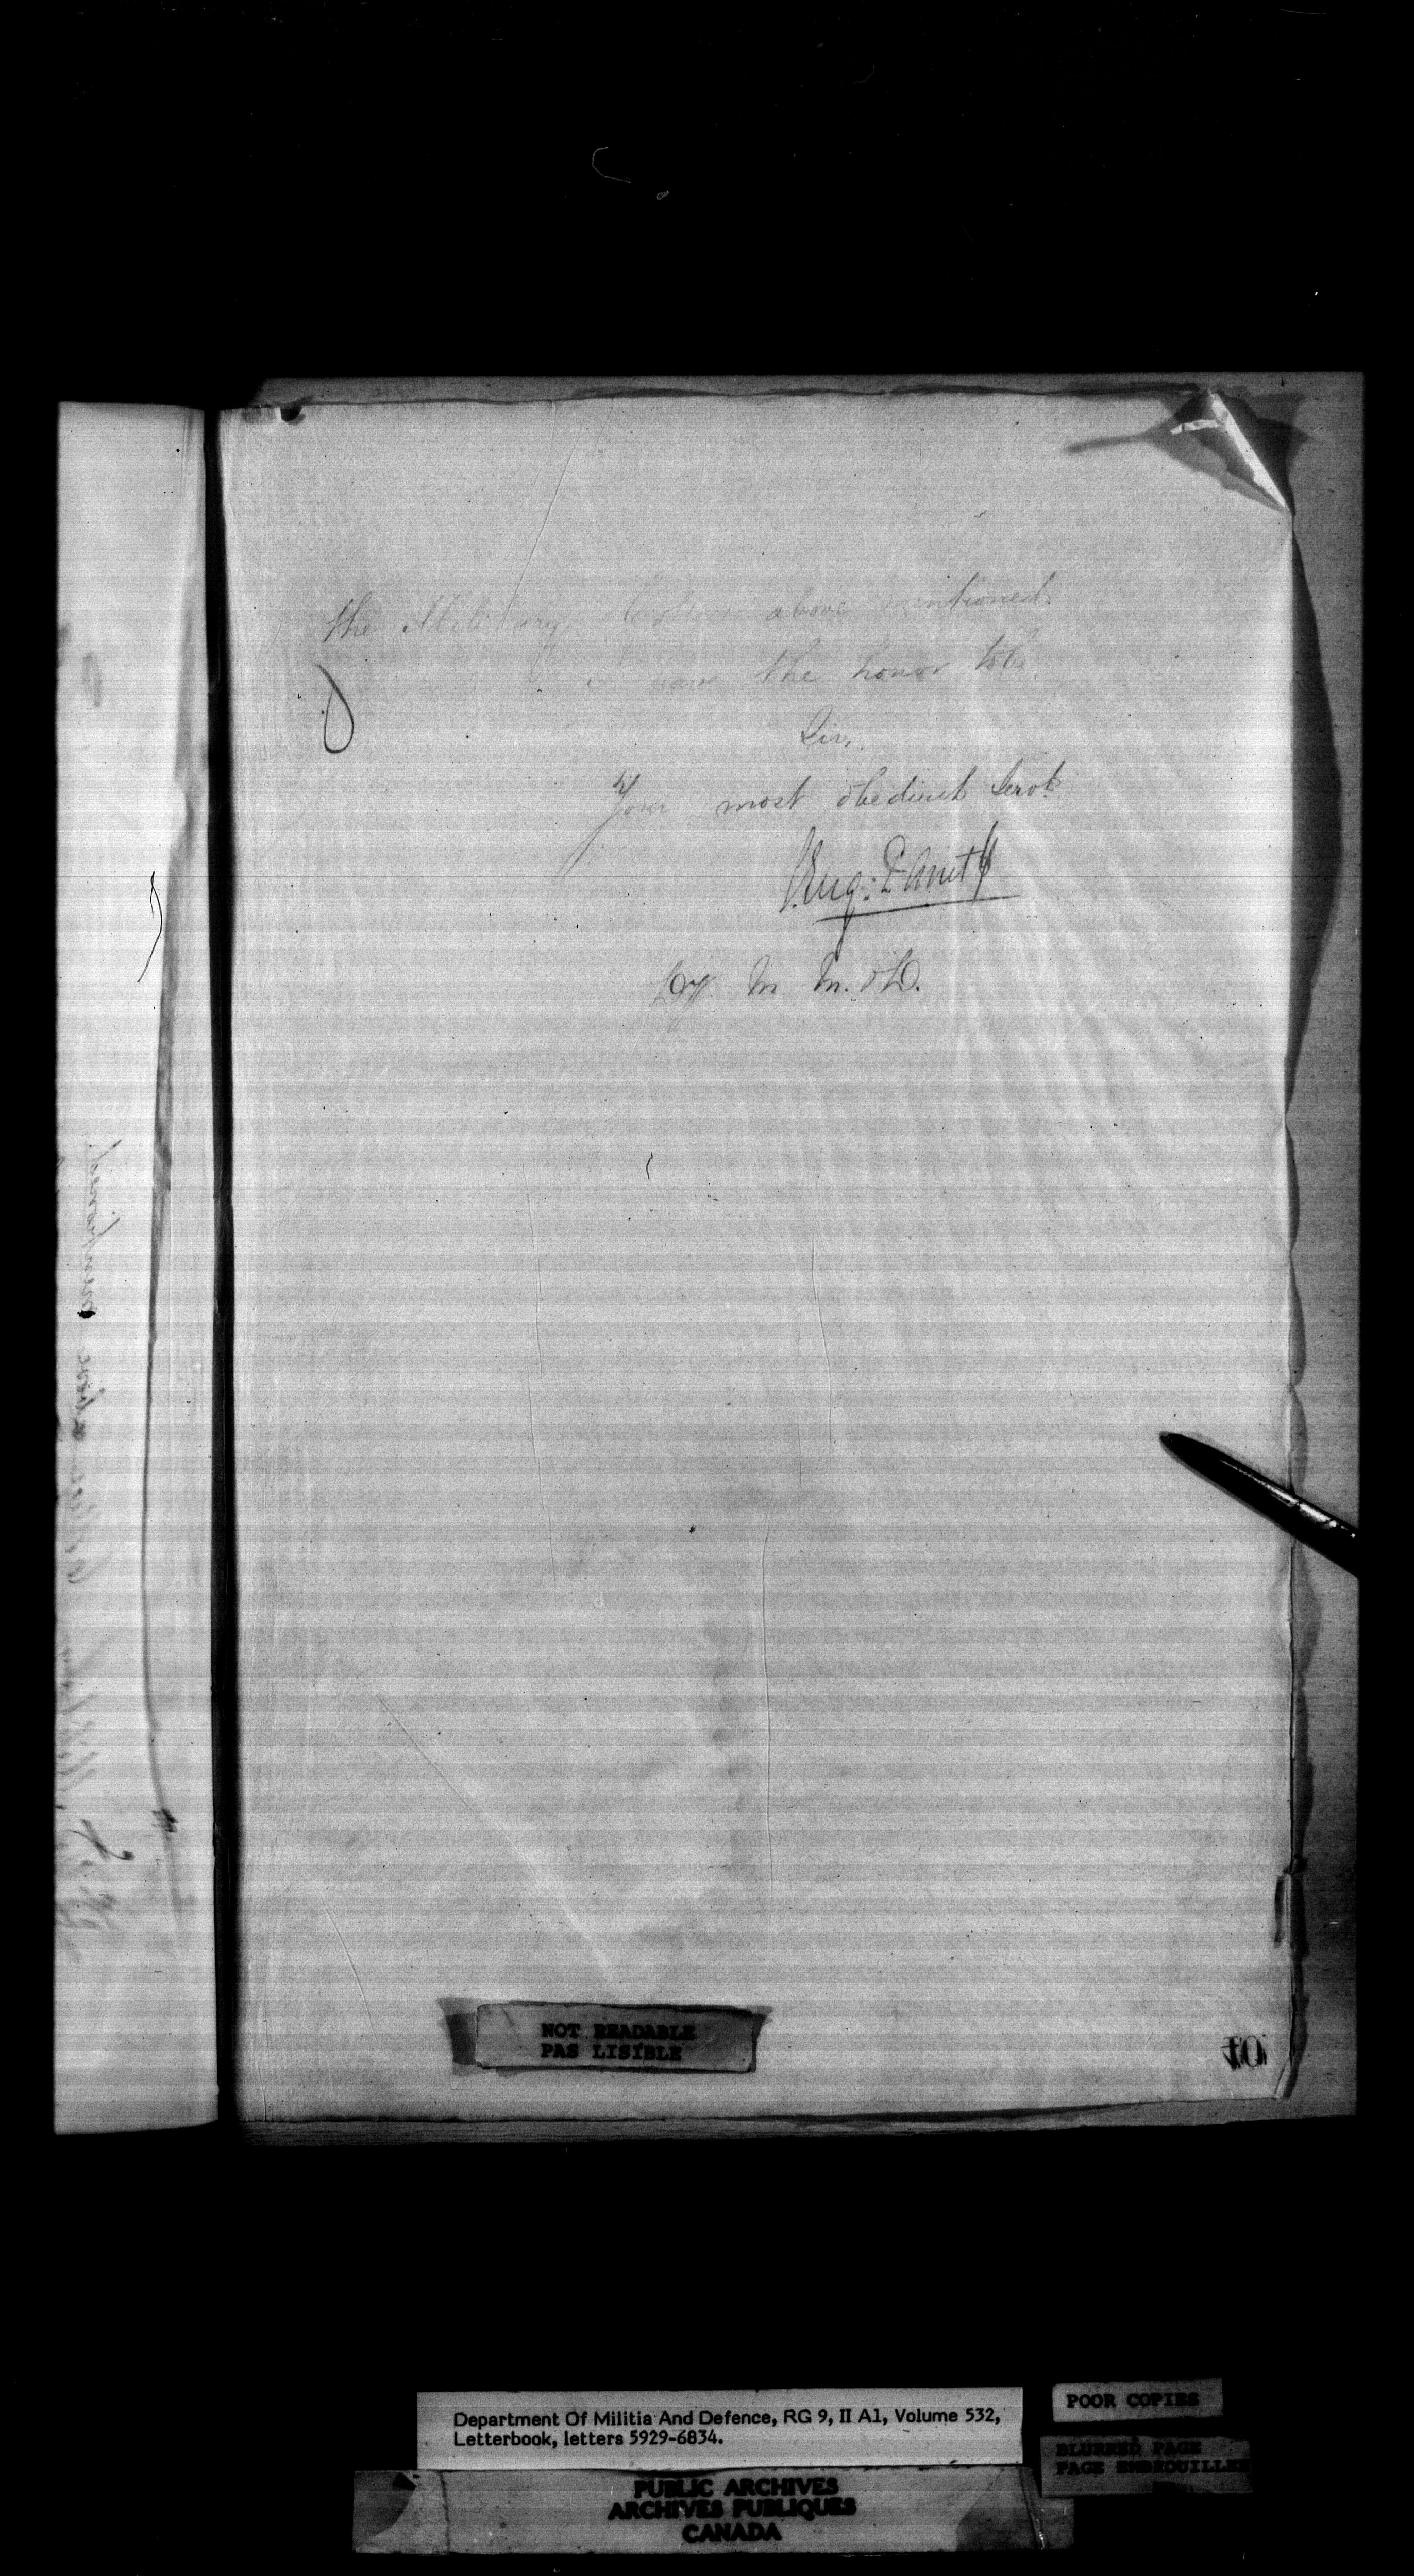 the Military College above mentioned.
I have the honor to be,
Sir,
Your most obedient Servt
C. Eug: Panet
Dy M M. & D.
NOT READABLE
PAS LISIBLE
Department Of Militia And Defence, RG 9, II A1, Volume 532,
Letterbook, letters 5929-6834.
POOR COPIES
BLURRED PAGE
PAGE EMBROUILLEE
PUBLIC ARCHIVES
ARCHIVES PUBLIQUES
CANADA